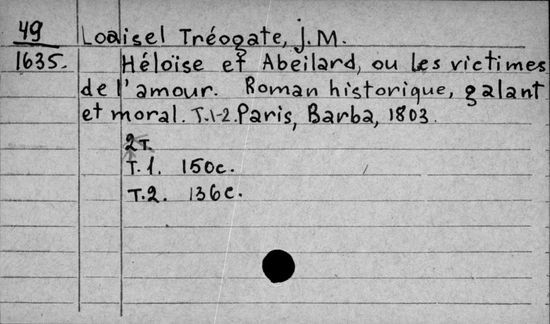 49 Loaisel Tréogate, J.M.
1635. Héloïse et Abeilard, ou les victimes
de l'amour. Roman historique, galant
et moral. T.1-2. Paris, Barba, 1803.
2т.
T.1. 150c.
T.2. 136c.